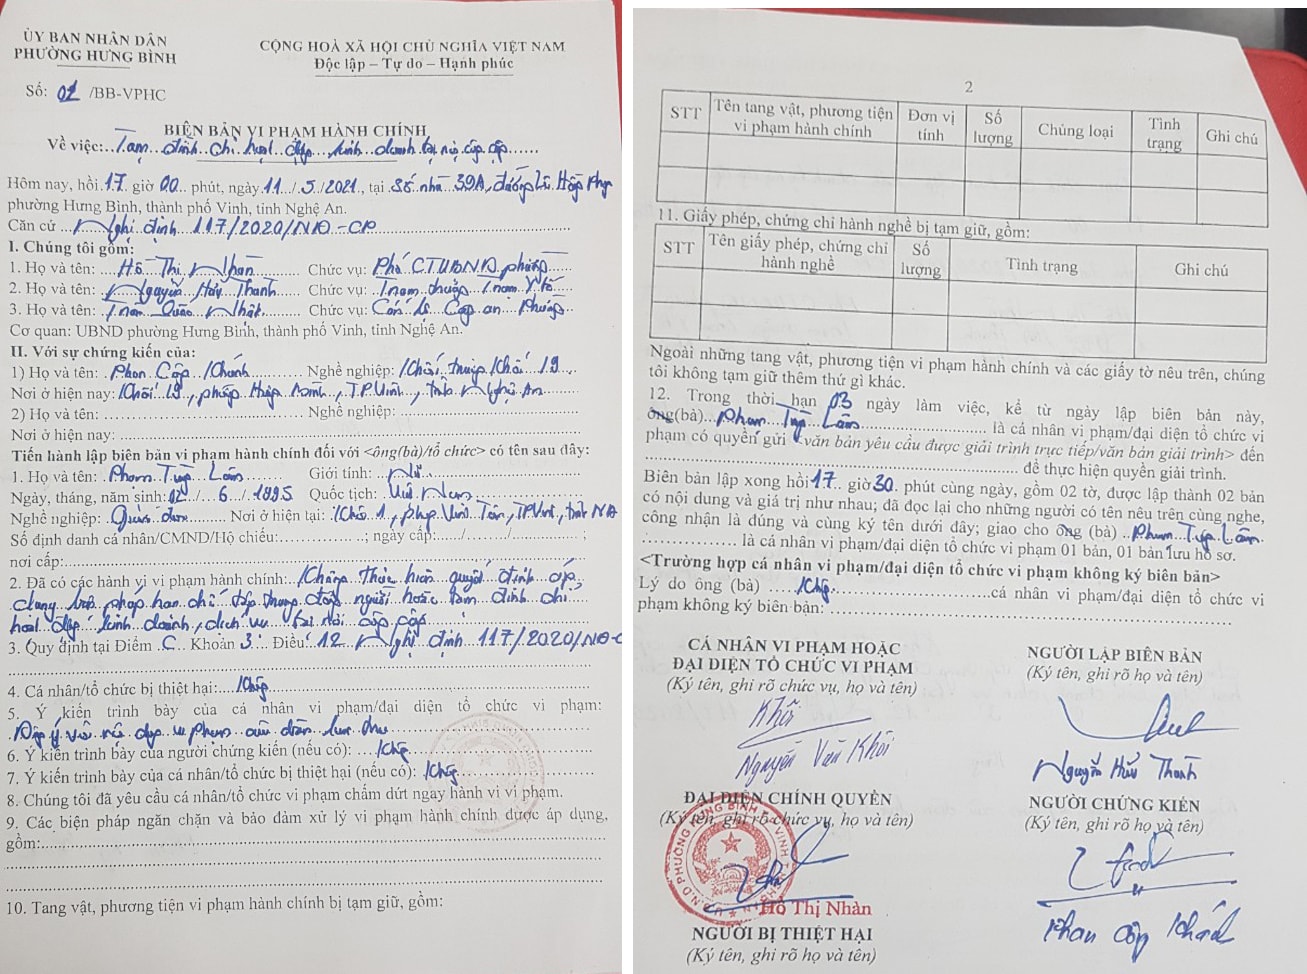 ỦY BAN NHÂN DÂN
PHƯỜNG HƯNG BÌNH
CỘNG HOÀ XÃ HỘI CHỦ NGHĨA VIỆT NAM
Độc lập – Tự do – Hạnh phúc
Số: 02 /BB-VPHC
BIÊN BẢN VI PHẠM HÀNH CHÍNH
Về việc: Tạm đình chỉ hoạt động kinh doanh
Hôm nay, hồi 17 giờ 00 phút, ngày 11 / 5 /2021, tại Số nhà 39A, đường Lê Hồng Phong
phường Hưng Bình, thành phố Vinh, tỉnh Nghệ An.
Căn cứ Nghị định 117/2020/NĐ-CP
I. Chúng tôi gồm:
1. Họ và tên: Hồ Thị Nhàn Chức vụ: Phó CTUBND phường
2. Họ và tên: Nguyễn Hữu Thanh Chức vụ: Trạm trưởng Trạm Y tế
3. Họ và tên: Trần Quốc Nhật Chức vụ: Cán bộ Công an Phường
Cơ quan: UBND phường Hưng Bình, thành phố Vinh, tỉnh Nghệ An.
II. Với sự chứng kiến của:
1) Họ và tên: Phan Công Khánh Nghề nghiệp: Khối trưởng Khối 19
Nơi ở hiện nay: Khối 19, phường Hưng Bình, TP.Vinh, tỉnh Nghệ An
2) Họ và tên: Nghề nghiệp:
Nơi ở hiện nay:
Tiến hành lập biên bản vi phạm hành chính đối với <ông(bà)/tổ chức> có tên sau đây:
1. Họ và tên: Phạm Tùng Lâm Giới tính:
Ngày, tháng, năm sinh: 02 / 6 /1995 Quốc tịch: Việt Nam
Nghề nghiệp: Nơi ở hiện tại: Khối 1, phường Vinh Tân, TP Vinh, tỉnh NA
Số định danh cá nhân/CMND/Hộ chiếu: ; ngày cấp: / / ;
nơi cấp:
2. Đã có các hành vi vi phạm hành chính: Không thực hiện quyết định áp
dụng biện pháp hạn chế tập trung đông người hoặc tạm đình chỉ
hoạt động kinh doanh, dịch vụ tại nơi công cộng
3. Quy định tại Điểm C Khoản 3 Điều 12 Nghị định 117/2020/NĐ-C
4. Cá nhân/tổ chức bị thiệt hại: Không
5. Ý kiến trình bày của cá nhân vi phạm/đại diện tổ chức vi phạm:
Đồng ý với nội dung vi phạm
6. Ý kiến trình bày của người chứng kiến (nếu có): Không
7. Ý kiến trình bày của cá nhân/tổ chức bị thiệt hại (nếu có): Không
8. Chúng tôi đã yêu cầu cá nhân/tổ chức vi phạm chấm dứt ngay hành vi vi phạm.
9. Các biện pháp ngăn chặn và bảo đảm xử lý vi phạm hành chính được áp dụng,
gồm:
10. Tang vật, phương tiện vi phạm hành chính bị tạm giữ, gồm:
2
STT Tên tang vật, phương tiện vi phạm hành chính Đơn vị tính Số lượng Chủng loại Tình trạng Ghi chú
11. Giấy phép, chứng chỉ hành nghề bị tạm giữ, gồm:
STT Tên giấy phép, chứng chỉ hành nghề Số lượng Tình trạng Ghi chú
Ngoài những tang vật, phương tiện vi phạm hành chính và các giấy tờ nêu trên, chúng
tôi không tạm giữ thêm thứ gì khác.
12. Trong thời hạn 03 ngày làm việc, kể từ ngày lập biên bản này,
ông(bà) Phạm Tùng Lâm là cá nhân vi phạm/đại diện tổ chức vi
phạm có quyền gửi <văn bản yêu cầu được giải trình trực tiếp/văn bản giải trình> đến
để thực hiện quyền giải trình.
Biên bản lập xong hồi 17 giờ 30 phút cùng ngày, gồm 02 tờ, được lập thành 02 bản
có nội dung và giá trị như nhau; đã đọc lại cho những người có tên nêu trên cùng nghe,
công nhận là đúng và cùng ký tên dưới đây; giao cho ông (bà) Phạm Tùng Lâm
là cá nhân vi phạm/đại diện tổ chức vi phạm 01 bản, 01 bản lưu hồ sơ.
<Trường hợp cá nhân vi phạm/đại diện tổ chức vi phạm không ký biên bản>
Lý do ông (bà) Không cá nhân vi phạm/đại diện tổ chức vi
phạm không ký biên bản:
CÁ NHÂN VI PHẠM HOẶC
ĐẠI DIỆN TỔ CHỨC VI PHẠM
(Ký tên, ghi rõ chức vụ, họ và tên)
Khôi
Nguyễn Văn Khôi
NGƯỜI LẬP BIÊN BẢN
(Ký tên, ghi rõ họ và tên)
Nguyễn Hữu Thanh
ĐẠI DIỆN CHÍNH QUYỀN
(Ký tên, ghi rõ chức vụ, họ và tên)
Hồ Thị Nhàn
NGƯỜI CHỨNG KIẾN
(Ký tên, ghi rõ họ và tên)
Phan Công Khánh
NGƯỜI BỊ THIỆT HẠI
(Ký tên, ghi rõ họ và tên)